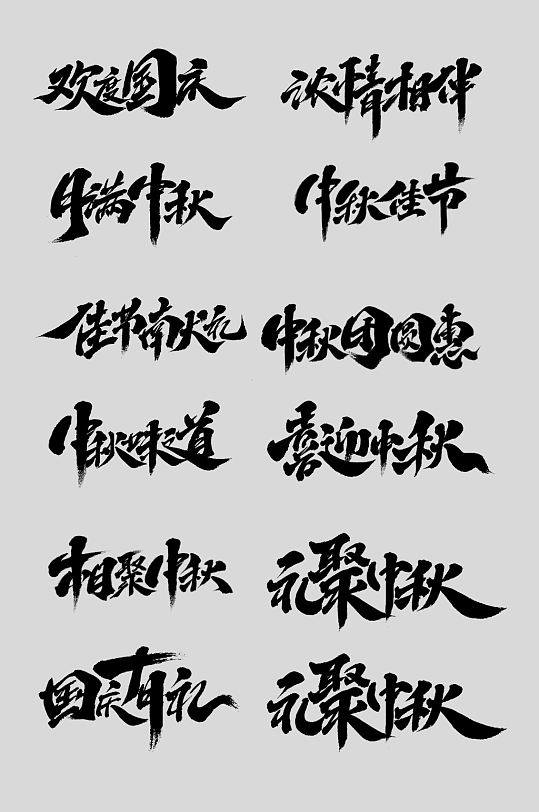 欢度国庆
浓情相伴
月满中秋
中秋佳节
佳节有礼
中秋团圆惠
中秋味之道
喜迎中秋
相聚中秋
礼聚中秋
国庆有礼
礼聚中秋